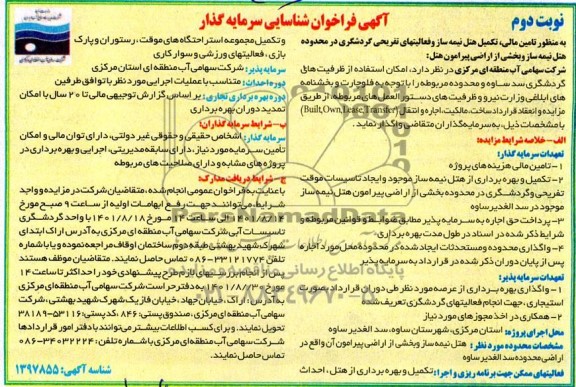 نوبت دوم
آگهی فراخوان شناسایی سرمایه گذار
به منظور تامین مالی، تکمیل هتل نیمه ساز و فعالیتهای تفریحی گردشگری در محدوده
هتل نیمه ساز و بخشی از اراضی پیرامون هتل:
شرکت سهامی آب منطقه ای مرکزی در نظر دارد، امکان استفاده از ظرفیت های
گردشگری سد ساوه و محدوده مربوطه را با توجه به و بخشنامه
های ابلاغی وزارت نیرو و ظرفیت های دستورالعمل های مربوطه، از طریق
مزایده و انعقاد قرارداد ساخت، مالکیت، اجاره و انتقال (Built,Own,Lease,Transfer)
با مشخصات ذیل، به سرمایه گذاران متقاضی واگذار نماید.
الف- خلاصه شرایط مزایده:
تعهدات سرمایه گذار:
۱- تامین مالی هزینه های پروژه
۲- تکمیل و بهره برداری از هتل نیمه ساز موجود و ایجاد تاسیسات موقت
تفریحی و گردشگری در محدوده بخشی از اراضی پیرامون هتل نیمه ساز
موجود در سد الغدیر ساوه
۳- پرداخت حق اجاره به سرمایه پذیر مطابق ضوابط و قوانین مربوطه و
شرایط ذکر شده در اسناد در طول مدت بهره برداری.
۴- واگذاری محدوده و مستحدثات ایجاد شده در محدوده محل مورد اجاره
پس از پایان دوران ذکر شده در قرارداد به سرمایه پذیر
تعهدات سرمایه پذیر:
۱- واگذاری بهره برداری از عرصه مورد نظر طی دوران قرارداد بصورت
استیجاری، جهت انجام فعالیتهای گردشگری تعریف شده
۲- همکاری در اخذ مجوزهای مورد نیاز
محل اجرای پروژه: استان مرکزی، شهرستان ساوه، سد الغدیر ساوه
مشخصات محدوده مورد نظر: هتل نیمه ساز و بخشی از اراضی پیرامون آن واقع در
اراضی محدوده سد الغدیر ساوه
فعالیتهای ممکن جهت برنامه ریزی و اجرا: تکمیل و بهره برداری از هتل، احداث
و تکمیل مجموعه استراحتگاه های موقت، رستوران و پارک
بازی، فعالیتهای ورزشی و سوارکاری
سرمایه پذیر: شرکت سهامی آب منطقه ای مرکزی
دوره احداث: متناسب با عملیات اجرایی مورد نظر با توافق طرفین
دوره بهره برداری تجاری: بر اساس گزارش توجیهی مالی تا ۲۰ سال با امکان
تمدید دوران بهره برداری
ب- شرایط سرمایه گذاران:
سرمایه گذار: اشخاص حقیقی و حقوقی غیر دولتی، دارای توان مالی و امکان
تأمین سرمایه مورد نیاز، دارای سابقه مدیریتی، اجرایی و بهره برداری در
پروژه های مشابه و دارای صلاحیت های مربوطه
ج- شرایط دریافت مدارک:
با عنایت به فراخوان عمومی انجام شده، متقاضیان شرکت در مزایده و واجد
شرایط، می توانند جهت رفع ابهامات اولیه از ساعت ۹ صبح مورخ
مورخ ۱۴۰۱/۸/۱۸ با واحد گردشگری
تاسیسات آبی شرکت سهامی آب منطقه ای مرکزی به آدرس اراک ابتدای
شهرک شهید بهشتی طبقه دوم ساختمان اوقاف مراجعه نموده و یا با شماره
تلفن ۳۳۱۲۱۷۷۴-۰۸۶ تماس حاصل نمایند. متقاضیان موظف هستند
پس از انجام طرح پیشنهادی خود را حداکثر تا ساعت ۱۴
مورخ به دفتر حراست شرکت سهامی آب منطقه ای مرکزی
به آدرس: اراک، میدان جهاد، خیابان فاز یک شهرک شهید بهشتی، شرکت
آب منطقه ای مرکزی، صندوق پستی: ۸۴۶، کد پستی: ۵۳۱۱۶-۳۸۱۸۹
تحویل نمایند. و برای کسب اطلاعات بیشتر می توانند با دفتر امور قراردادها
شرکت سهامی آب منطقه ای مرکزی با شماره تلفن: ۳۴۰۳۲۲۲۴-۰۸۶
تماس حاصل نمایند.
شناسه آگهی: ۱۳۹۷۸۵۵